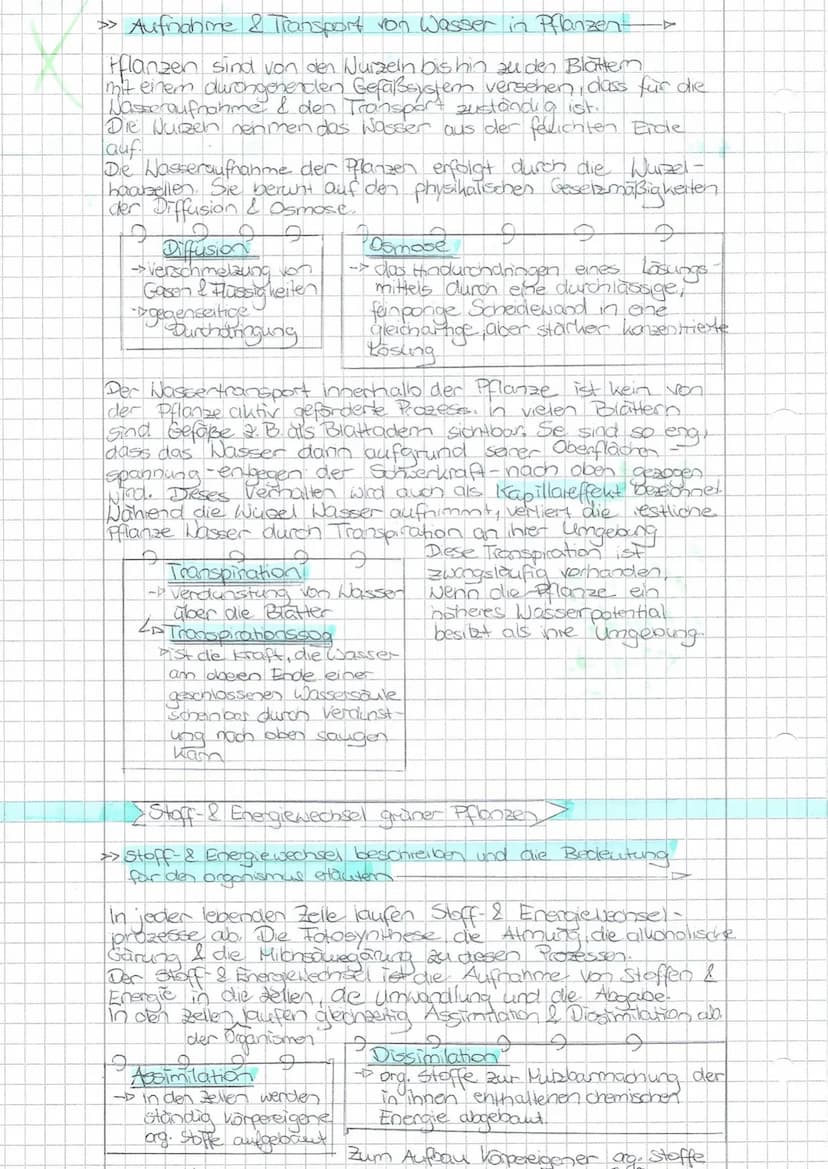 >> Aufnahme & Transport von Wasser in Pflanzen
Pflanzen sind von den Wurzeln bis hin zu den Blättern
mit einem durchgehenden Gefäßsystem versehen, dass für die
Wasseraufnahme & den Transport zuständig ist.
Die Wurzen nehmen das Wasser aus der feuchten Erde
auf.
Die Wasseraufnahme der Pflanzen erfolgt durch die Wurzel-
haarzellen. Sie beruht auf den physikalischen Gesetzmäßigkeiten
der Diffusion & Osmose.
Diffusion
→ Verschmelzung von
Gasen & Flüssigkeiten
→ gegenseitige
Durchdringung
Osmose
→ das Hindurchdringen eines Lösungs-
mittels durch eine durchlässige,
feinporige Scheidewand in eine
gleichartige, aber stärker konzentrierte
Lösung
Der Wassertransport innerhalb der Pflanze ist kein von
der Pflanze aktiv geförderte Prozess. In vielen Blättern
sind Gefäße z.B. als Blattadern sichtbar. Sie sind so eng,
dass das Wasser dann aufgrund seiner Oberflächen-
spannung - entgegen der Schwerkraft - nach oben gezogen
wird. Dieses Verhalten wird auch als Kapillareffekt bezeichnet
Während die Wurzel Wasser aufnimmt, verliert die restliche
Pflanze Wasser durch Transpiration an ihrer Umgebung
Diese Transpiration ist
zwangsläufig vorhanden,
wenn die Pflanze ein
höheres Wasserpotential
besitzt als ihre Umgebung.
Transpiration
→ Verdunstung von Wasser
über die Blätter
↳ Transpirationssog
→ ist die Kraft, die Wasser
am oberen Ende einer
geschlossenen Wassersäule
scheinbar durch Verdunst-
ung nach oben saugen
kann
Stoff- & Energiewechsel grüner Pflanzen
>> Stoff- & Energiewechsel beschreiben und die Bedeutung
für den Organismus erläutern
In jeder lebenden Zelle laufen Stoff- & Energiewechsel-
prozesse ab. Die Fotosynthese, die Atmung, die alkoholische
Gärung & die Milchsäuregärung zu diesen Prozessen.
Der Stoff- & Energiewechsel ist die Aufnahme von Stoffen &
Energie in die Zellen, die Umwandlung und die Abgabe.
In den Zellen laufen gleichzeitig Assimilation & Dissimilation ab
der Organismen
Assimilation
→ In den Zellen werden
ständig körpereigene
org. Stoffe aufgebaut
Dissimilation
→ org. Stoffe zur Nutzbarmachung der
in ihnen enthaltenen chemischen
Energie abgebaut
Zum Aufbau körpereigener org. Stoffe